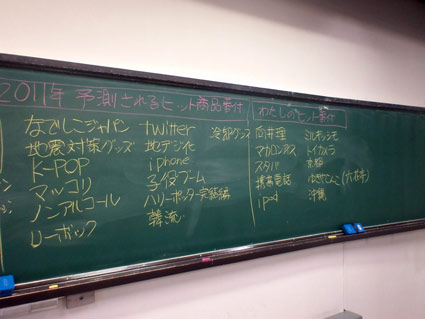 2011年 予測されるヒット商品番付
なでしこジャパン
地震対策グッズ
K-POP
マッコリ
ノンアルコール
ルーブック
twitter
地デジ化
iphone
子役ブーム
ハリーポッター完結編
韓流
冷却グッズ
わたしのヒット番付
向井理
マカロンアイス
スタバ
携帯電話
iPad
ミルキッシモ
トイカメラ
京都
沖縄